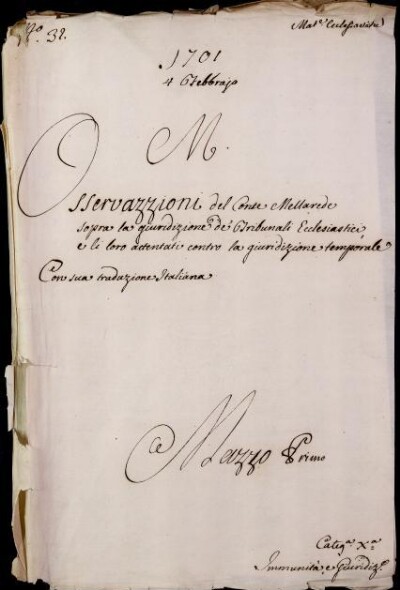 N.º 32.
Mat.ª Ecclesiastica
1701
4 Febbrajo
M.
Osservazzioni del Conte Mellarede
sopra la giuridizione de Tribunali Ecclesiastici
e li loro attentati contro la giuridizione temporale
Con sua traduzione Italiana
Mazzo Primo
Categ.ª X.ª
Immunità e Giuridiz.e